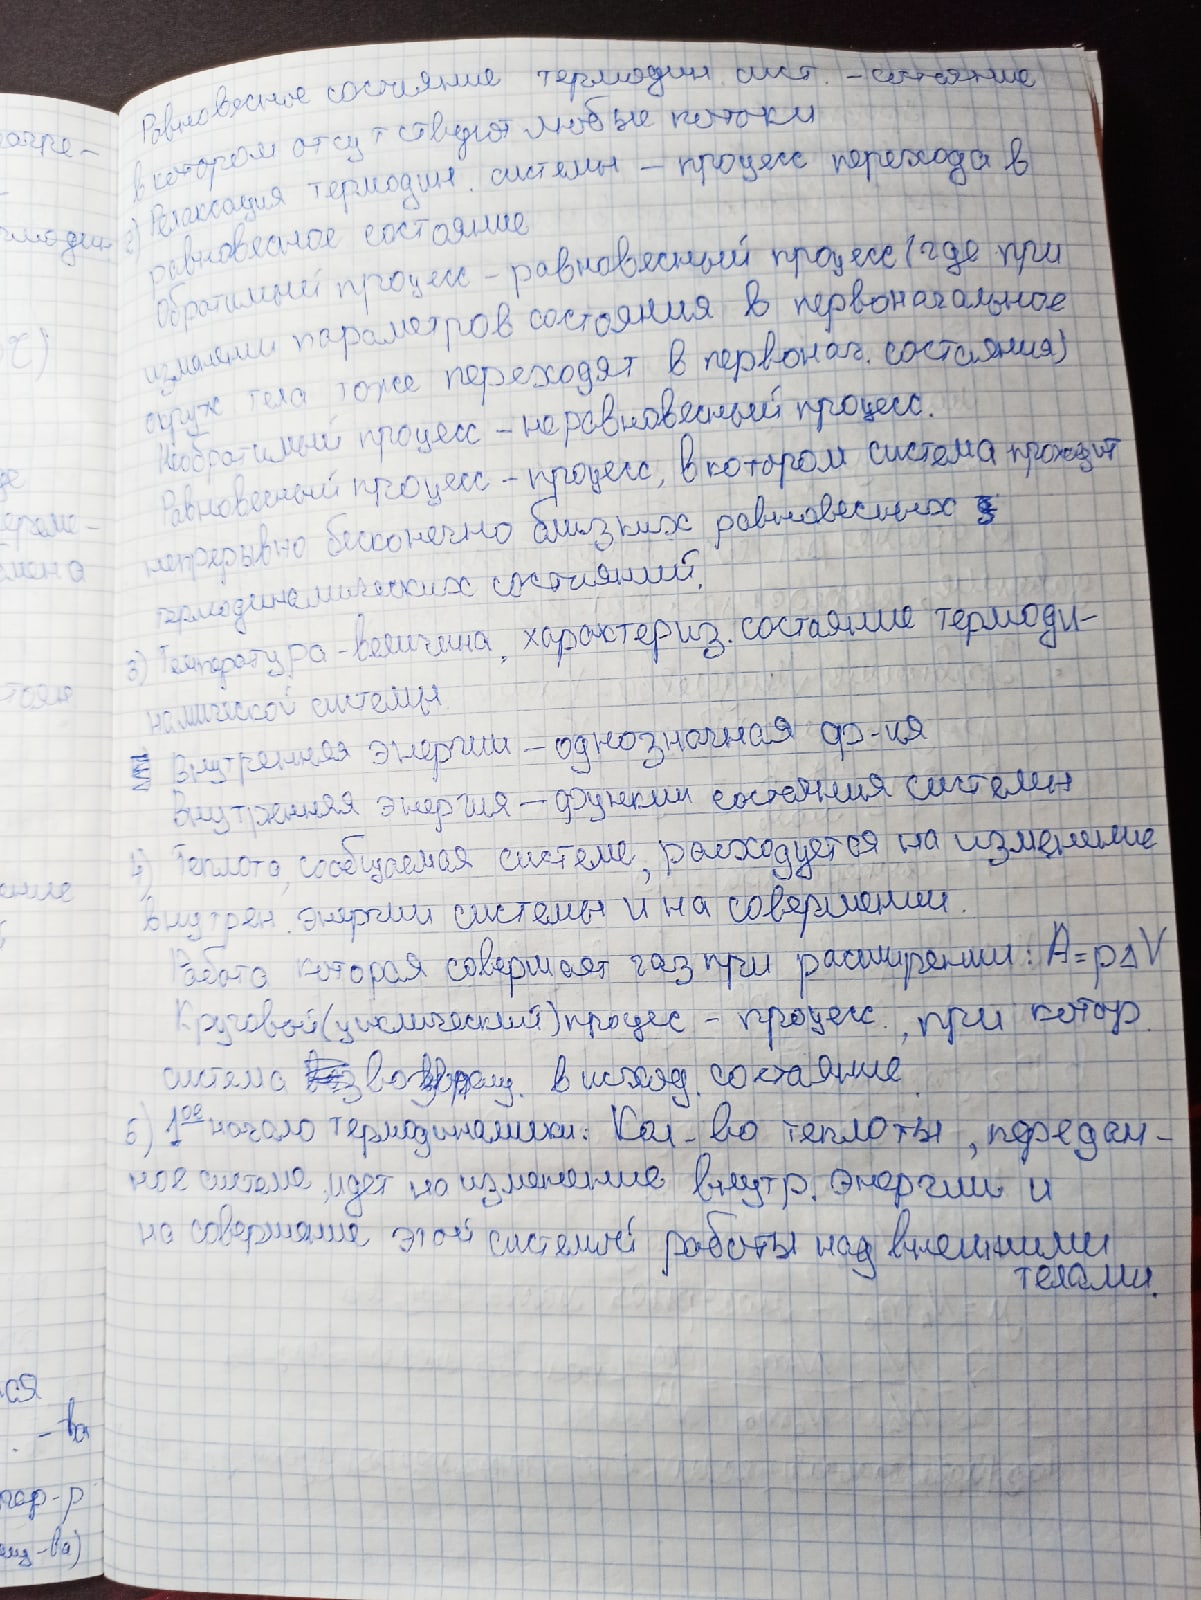 Равновесное состояние термодин. сист. - состояние
в котором отсутствуют любые потоки
2) Релаксация термодин. системы - процесс перехода в
равновесное состояние
Обратимый процесс - равновесный процесс (где при
параметров состояния в первоначальное
окруж тела тоже переходят в первонач. состояния)
Необратимый процесс - неравновесный процесс.
Равновесный процесс - процесс, в котором система проходит
непрерывно бесконечно близких равновесных
термодинамических состояний.
3) Температура - величина, характериз. состояние термоди-
намической системы
Внутренняя энергии - однозначная ф-ия
Внутренняя энергия - функции состояния системы
4) Теплота, сообщаемая системе, расходуется на изменение
внутрен. энергии системы и на совершении.
которая совершает газ при расширении: A=pΔV
Круговой (циклический) процес - процесс., при котор.
система возвращ. в исход. состояние
5) 1ое начало термодинамики: Кол-во теплоты, передан-
ное системе, идет на изменение внутр. энергии и
на совершение этой системой работы над внешними
телами.